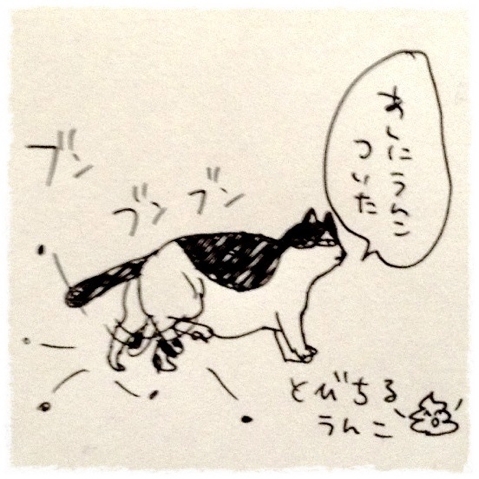 あしにうんこ
ついた
ブン
ブン
ブン
とびちる
うんこ